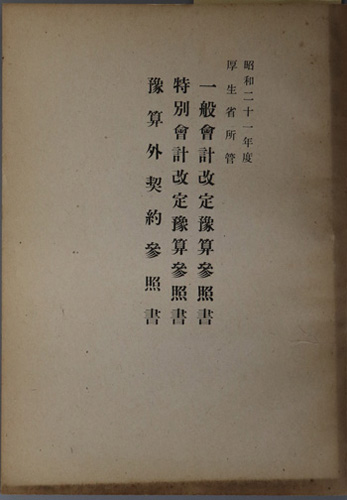 昭和二十一年度
厚生省所管
一般會計改定豫算參照書
特別會計改定豫算參照書
豫算外契約參照書